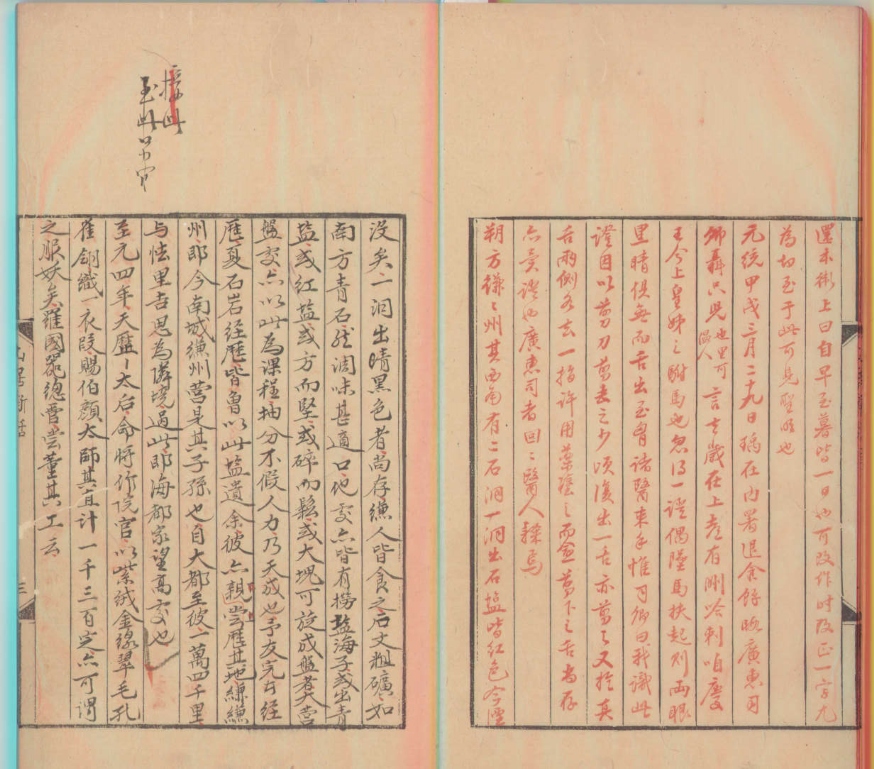 還未衙上曰自早至暮皆一日也可改作時改正一字尤
為切至于此可見聖明也
元統甲戌三月二十九日瑀在內署退食餘晚廣惠司
卿聶只兒也里可溫人言去歲在上都有剛哈剌咱慶
王今上皇姊之駙馬也忽得一證偶墜馬扶起則兩眼
黑睛俱無而舌出至胷諸醫束手惟司卿曰我識此
證因以剪刀剪去之少頃復出一舌亦剪之又於其
舌兩側各去一指許用藥塗之而愈剪下之舌尚存
亦異證也廣惠司者回〻醫人隸焉
朔方䌠〻州其西南有二石洞一洞出石鹽皆紅色今湮
接此
至此
沒矣一洞出晴黑色者尚存䌠人皆食之石文粗礦如
南方青石然調味甚適口他處亦皆有撈盐海子或出青
盐或紅盐或方而堅或碎而鬆或大塊可旋成盤者大營
盤處亦以此為課程抽分不假人力乃天成也予友完者經
歷夏石岩經歷皆魯以此盐遺余彼亦親嘗歷其地䌠䌠
州郎今南城䌠州營是其子孫也自大都至彼一萬四千里
与怯里吉思為隣境過此即海都家望高處也
至元四年天歷〻太后命將作院官以紫絨金線翠毛孔
雀翎織一衣段賜伯顏太師其直計一千三百定亦可謂
之服妖矣羅國器總管嘗董其工云
山居新話
三